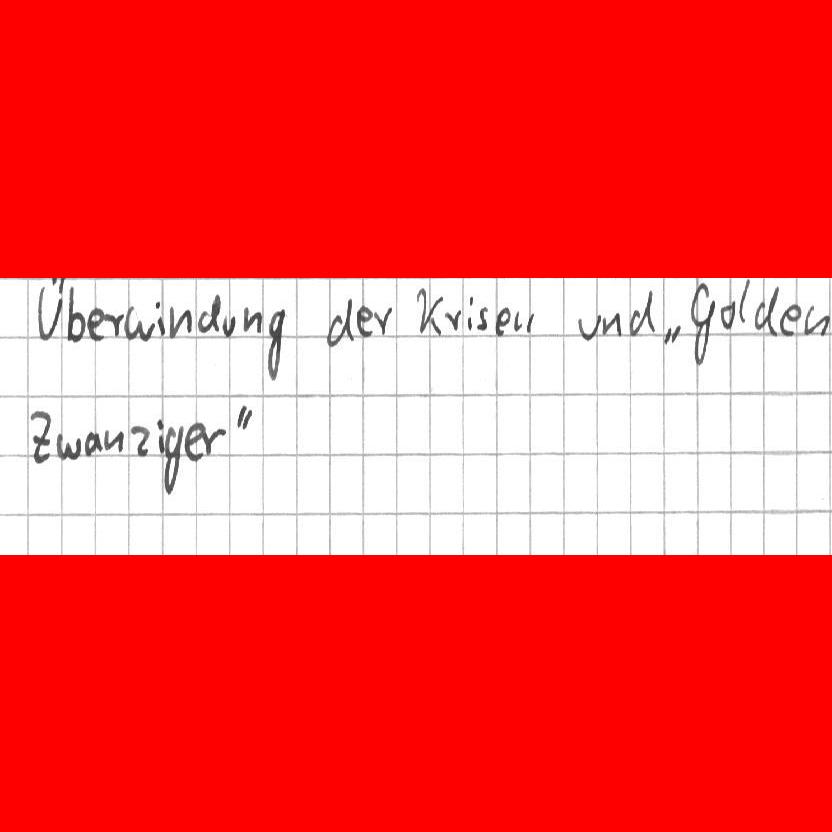 Überwindung der Krisen und „Golden
Zwanziger"